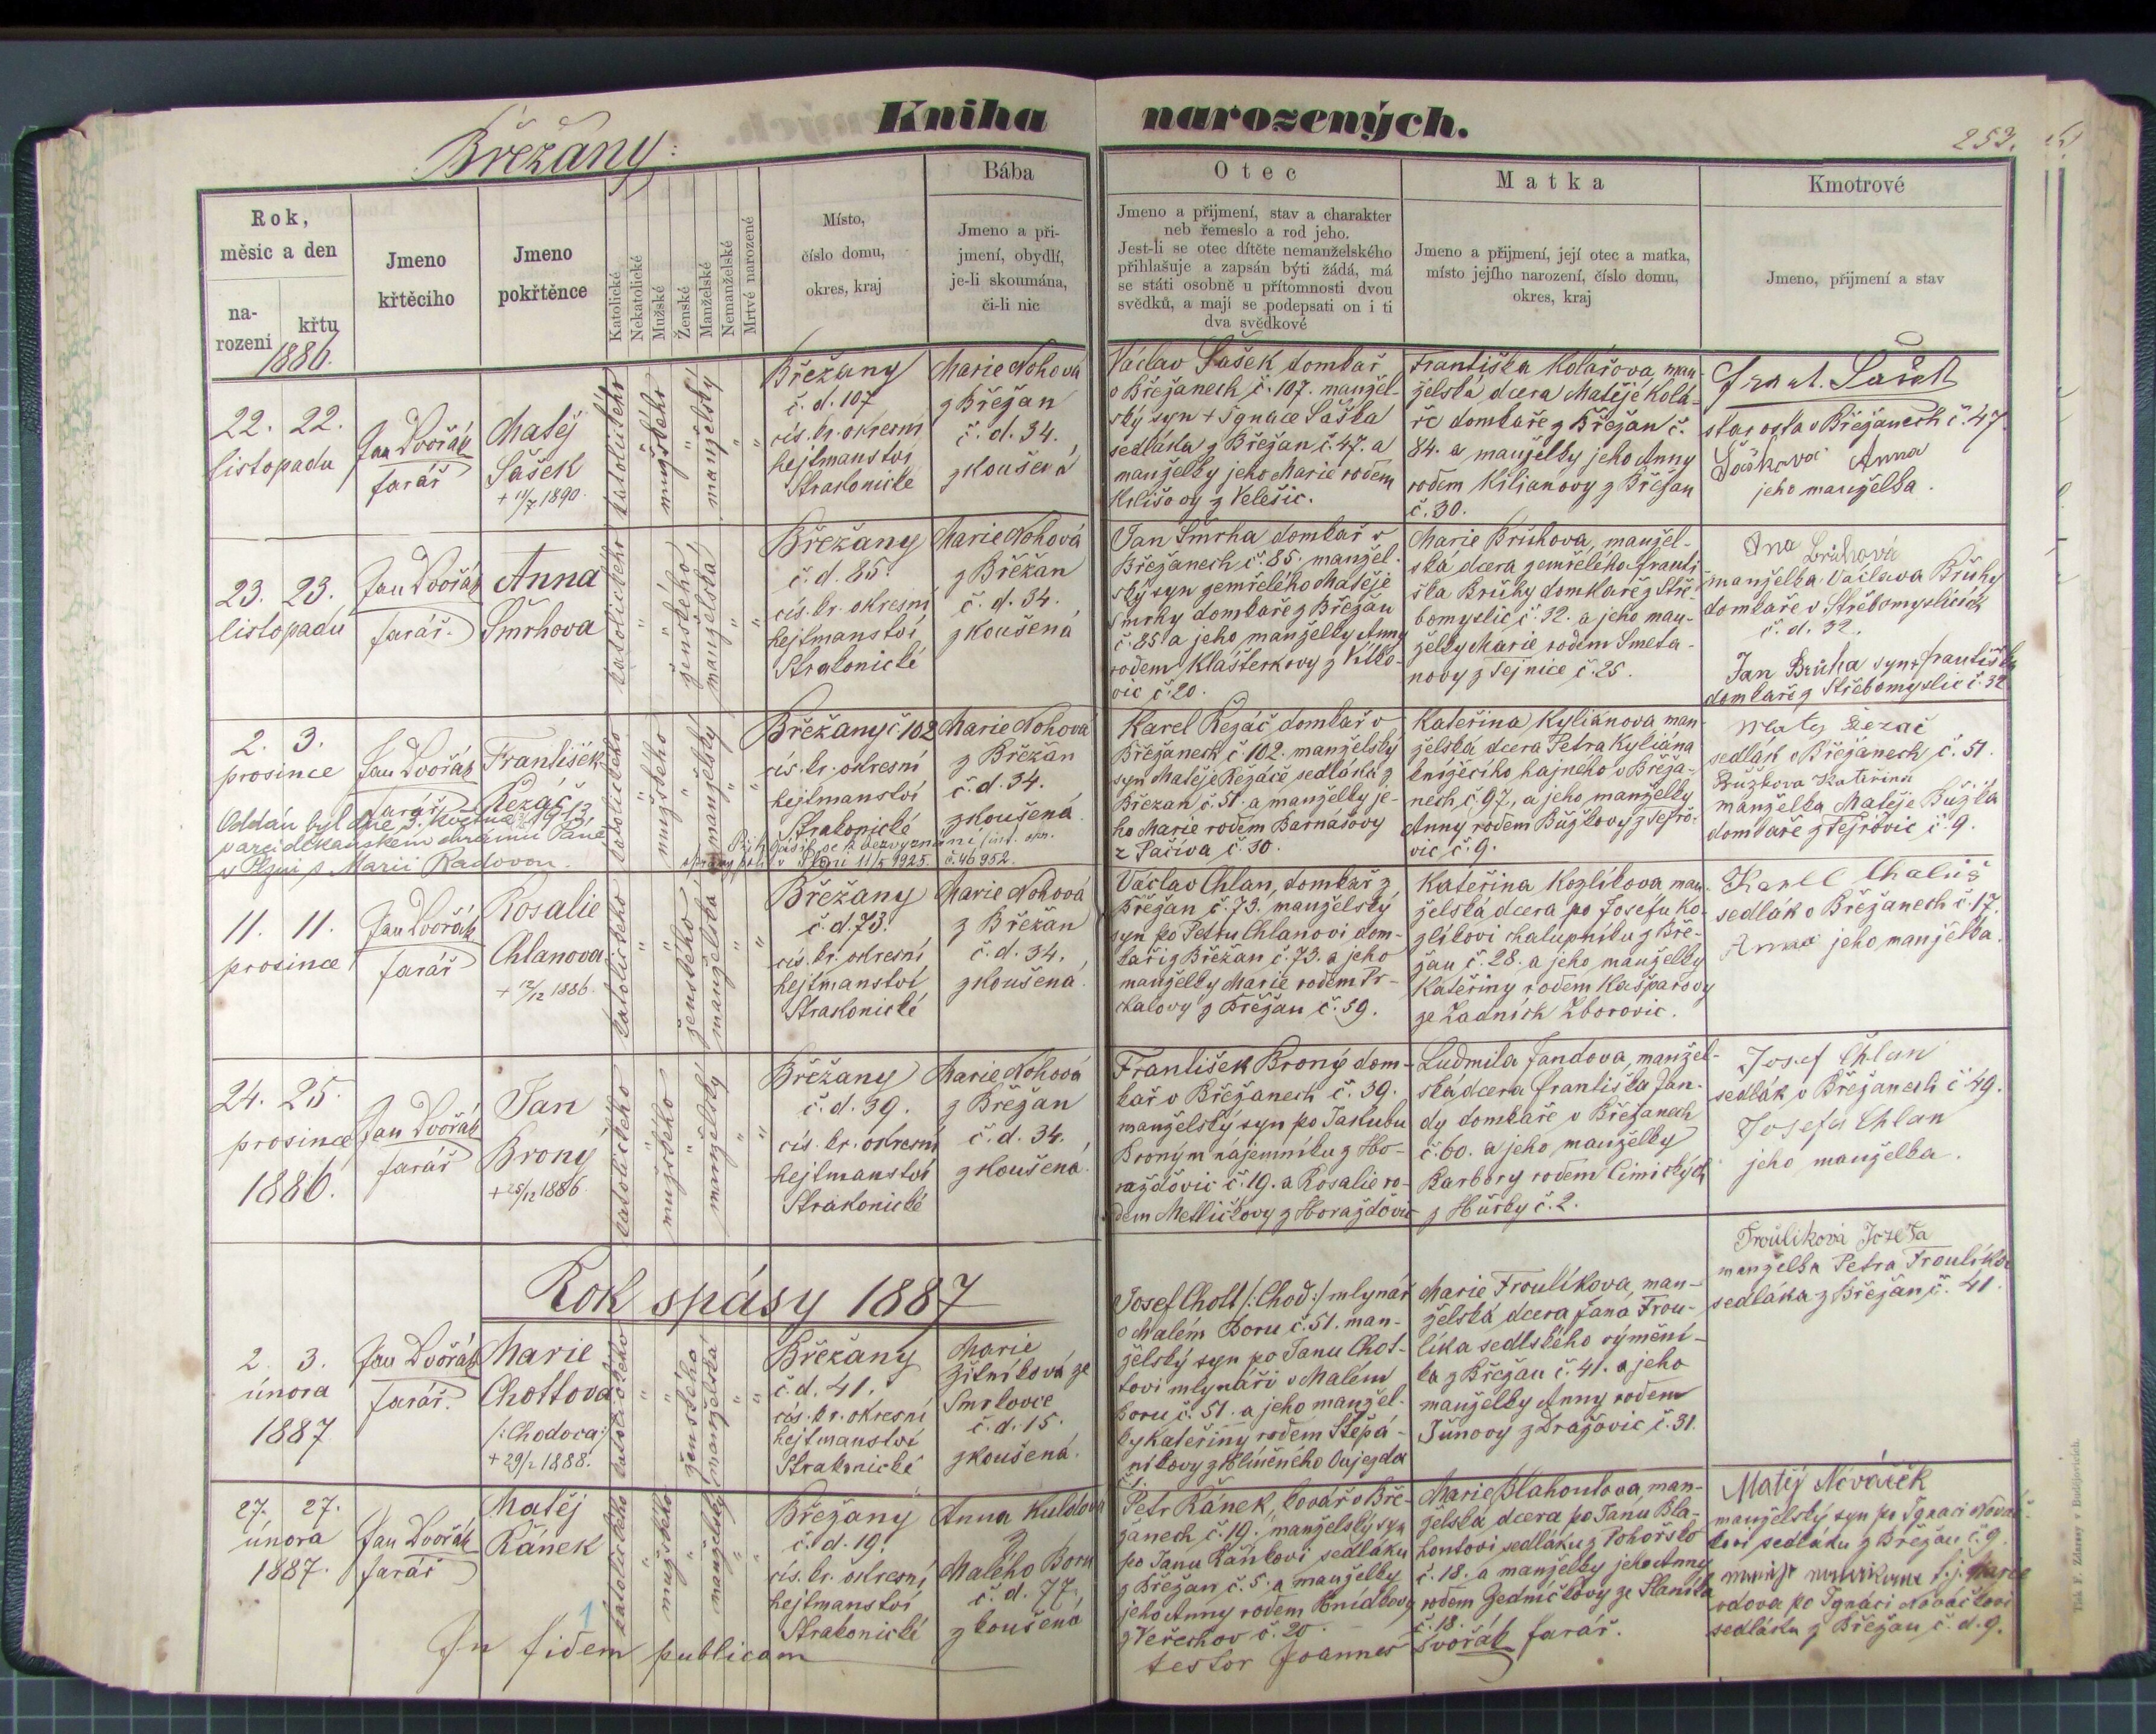 Kniha narozených.
Břežany:
253.
Rok,
měsíc a den
na-
rození
křtu
1886.
Jmeno
křtěcího
Jmeno
pokřtěnce
Katolické
Nekatolické
Mužské
Ženské
Manželské
Nemanželské
Mrtvé narozené
Místo,
číslo domu,
okres, kraj
Bába
Jmeno a při-
jmení, obydlí,
je-li skoumána,
či-li nic
Otec
Jmeno a přijmení, stav a charakter
neb řemeslo a rod jeho.
Jest-li se otec dítěte nemanželského
přihlašuje a zapsán býti žádá, má
se státi osobně u přítomnosti dvou
svědků, a mají se podepsati on i ti
dva svědkové
Matka
Jmeno a přijmení, její otec a matka,
místo jejího narození, číslo domu,
okres, kraj
Kmotrové
Jmeno, přijmení a stav
22. 22.
listopadu
Jan Dvořák
farář
Matěj
Sašek
+ 11/7 1890.
katolického
mužského
manželský
Břežany
č. d. 107
cís. kr. okresní
hejtmanství
Strakonické
Marie Nohová
z Břežan
č. d. 34.
zkoušená
Václav Sašek domkař
v Břežanech č. 107. manžel-
ský syn + Ignáce Saška
sedláka z Břežan č. 47. a
manželky jeho Marie rodem
Kilišovy z Velešic.
Františka Kolářova man-
želská dcera Matěje Kolá-
ře domkaře z Břežan č.
84. a manželky jeho Anny
rodem Kilianovy z Břežan
č. 30.
Frant. Sašek
starosta v Břežanech č. 47
Saskova Anna
jeho manželka.
23. 23.
listopadu
Jan Dvořák
farář.
Anna
Smrhova
katolického
ženského
manželská
Břežany
č. d. 85.
cís. kr. okresní
hejtmanství
Strakonické
Marie Nohová
z Břežan
č. d. 34.
zkoušená
Jan Smrha domkař v
Břežanech č. 85. manžel-
ský syn zemřelého Matěje
Smrhy domkaře z Břežan
č. 85 a jeho manželky Anny
rodem Klášterkovy z Vítko-
vic č. 20.
Marie Brůhova, manžel-
ská dcera zemřelého Franti-
ška Brůhy domkaře z Stře-
bomyslic č. 32. a jeho man-
želky Marie rodem Smeta-
novy z Tejnice č. 25.
Ana Brůhová
manželka Václava Brůhy
domkaře v Střebomyslicích
č. d. 32.
Jan Brůha syn + Františka
domkaře z Střebomyslic č. 32
2. 3.
prosince
Jan Dvořák
farář
František
Řezáč
Oddán byl dne 5. května 1913
v arciděkanském chrámu Páně
v Plzni s Marii Radovou.
katolického
mužského
manželský
Břežany č 102
cís. kr. okresní
hejtmanství
Strakonické
Marie Nohová
z Břežan
č. d. 34.
zkoušená
v Plzni 11/5 1925. č. 46952.
Karel Řezáč domkař v
Břežanech č. 102. manželský
syn Matěje Řezáče sedláka z
Břežan č. 51. a manželky je-
ho Marie rodem Barnašovy
z Pačiva č. 30.
Kateřina Kyliánova man-
želská dcera Petra Kyliána
knížecího hajného v Břeža-
nech č. 97., a jeho manželky
Anny rodem Bůžkovy z Tejřo-
vic č. 9.
Matej Řezač
sedlák v Břežanech č. 51.
Bužkova Katařina
manželka Matěje Bůžka
domkaře z Tejřovic č. 9.
11. 11.
prosince
Jan Dvořák
farář
Rosalie
Chlanova
+ 12/12 1886.
katolického
ženského
manželská
Břežany
č. d. 73.
cís. kr. okresní
hejtmanství
Strakonické
Marie Nohová
z Břežan
č. d. 34.
zkoušená
Václav Chlan, domkař z
Břežan č. 73. manželský
syn po Petru Chlanovi dom-
kaři z Břežan č. 73. a jeho
manželky Marie rodem Pr-
kalovy z Břežan č. 59.
Kateřina Kozlíkova man-
želská dcera po Josefu Ko-
zlíkovi chalupníku z Bře-
žan č. 28. a jeho manželky
Kateřiny rodem Kašparovy
ze Zadních Zborovic.
Karel Chaluš
sedlák v Břežanech č. 17.
Anna jeho manželka.
24. 25.
prosince
1886.
Jan Dvořák
farář
Jan
Brony
+ 25/12 1886
katolického
mužského
manželský
Břežany
č. d. 39.
cís. kr. okresní
hejtmanství
Strakonické
Marie Nohová
z Břežan
č. d. 34.
zkoušená.
František Brony dom-
kař v Břežanech č. 39.
manželský syn po Jakubu
Broným nájemníku z Ho-
raždovic č. 19. a Rosalie ro-
dem Metličkovy z Horaždovic
Ludmila Jandova, manžel-
ská dcera Františka Jan-
dy domkaře v Břežanech
č. 60. a jeho manželky
Barbory rodem Cimických
z Hůrky č. 2.
Josef Chlan
sedlák v Břežanech č 49.
Josefa Chlan
jeho manželka.
Rok spásy 1887
2. 3.
února
1887
Jan Dvořák
farář.
Marie
Chottova
/: Chodova :/
+ 29/2 1888.
katolického
ženského
manželská
Břežany
č. d. 41.
cís. kr. okresní
hejtmanství
Strakonické
Marie
Žitníková ze
Smrkovce
č. d. 15.
zkoušená.
Josef Chott /: Choď :/ mlynář
v Malém Boru č. 51. man-
želský syn po Janu Chot-
tovi mlynáři v Malém
Boru č. 51. a jeho manžel-
ky Kateřiny rodem Štěpá-
níkovy z Hliněného Oujezda
Marie Froulíkova, man-
želská dcera Jana Frou-
líka sedlského výmění-
ka z Břežan č. 41. a jeho
manželky Anny rodem
Junovy z Dražovic č. 31.
Froulíková Jozefa
manželka Petra Froulíka
sedláka z Břežan č. 41.
27. 27.
února
1887.
Jan Dvořák
farář
Matěj
Ránek
katolického
mužského
manželský
Břežany
č. d. 19.
cís. kr. okresní
hejtmanství
Strakonické
Anna Kuldová
z
Malého Boru
č. d. 77.
zkoušená
Petr Ránek, kovář v Bře-
žanech č. 19. manželský syn
po Janu Ráňkovi sedláku
z Břežan č. 5. a manželky
jeho Anny rodem
z Veřechov č. 20.
Marie Blahoutova, man-
želská dcera po Janu Bla-
houtovi sedláku z Pohorsko
č. 18. a manželky jeho Anny
rodem Jedničkovy ze Slaníka
č. 18.
Matěj Nováček
manželský syn po Ignaci Nováč-
kovi sedláku z Břežan č. 9.
rodova po Ignáci Nováčkovi
sedláku z Břežan č. d. 9.
In fidem publicam
testor Joannes Dvořák farář.
Tisk F. Zdarssy v Budějovicích.